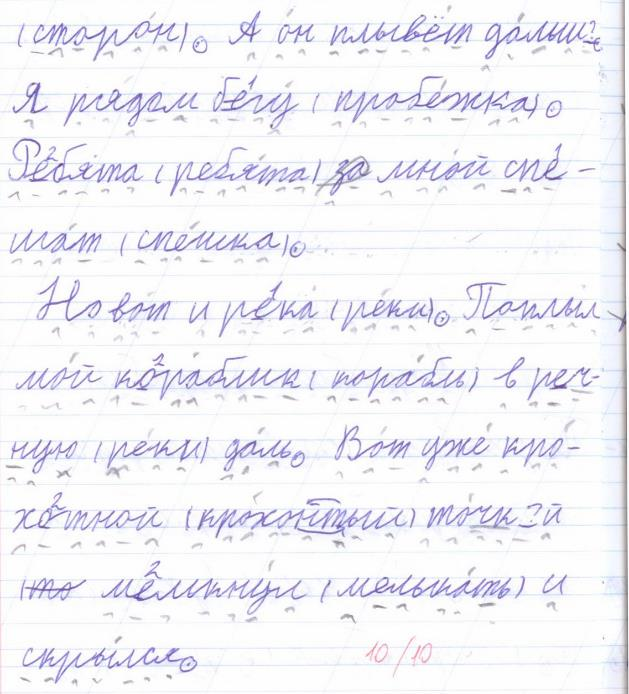 (сторо́н). А о́н плывёт да́льше
Я рядом бегу́ (пробе́жка).
Ребя́та (ребя́та) за мно́й спе-
ша́т (спе́шка).
Но во́т и река́ (ре́ки). Поплыл
мо́й кораблик (кора́бль) в реч-
ную (ре́ки) да́ль. Во́т уже́ кро́-
хотной (кро́хотный) то́чкой
то мелькну́л (мелька́ть) и
скры́лся.
10/10